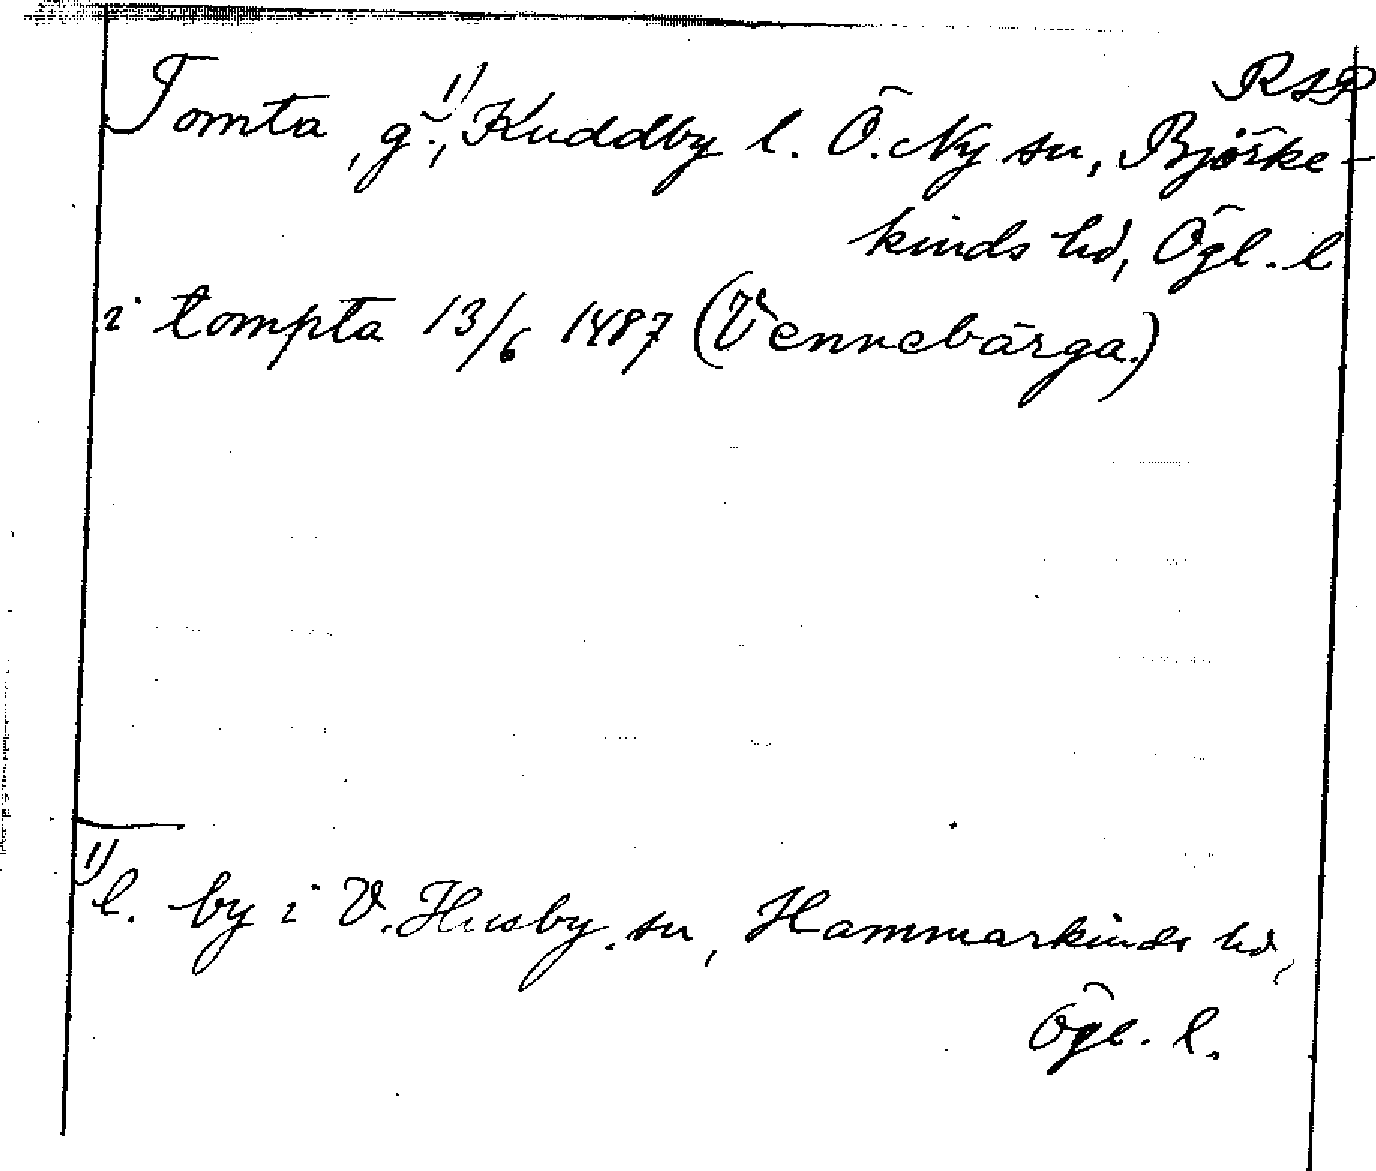 RAP
Tomta, g.,¹⁾ Kuddby l. Ö. Ny sn, Björke-
kinds hd, Ögl. l
i tompta 13/6 1487 (Vennebärga.)
¹⁾ l. by i V. Husby sn, Hammarkinds hd,
Ögl. l.